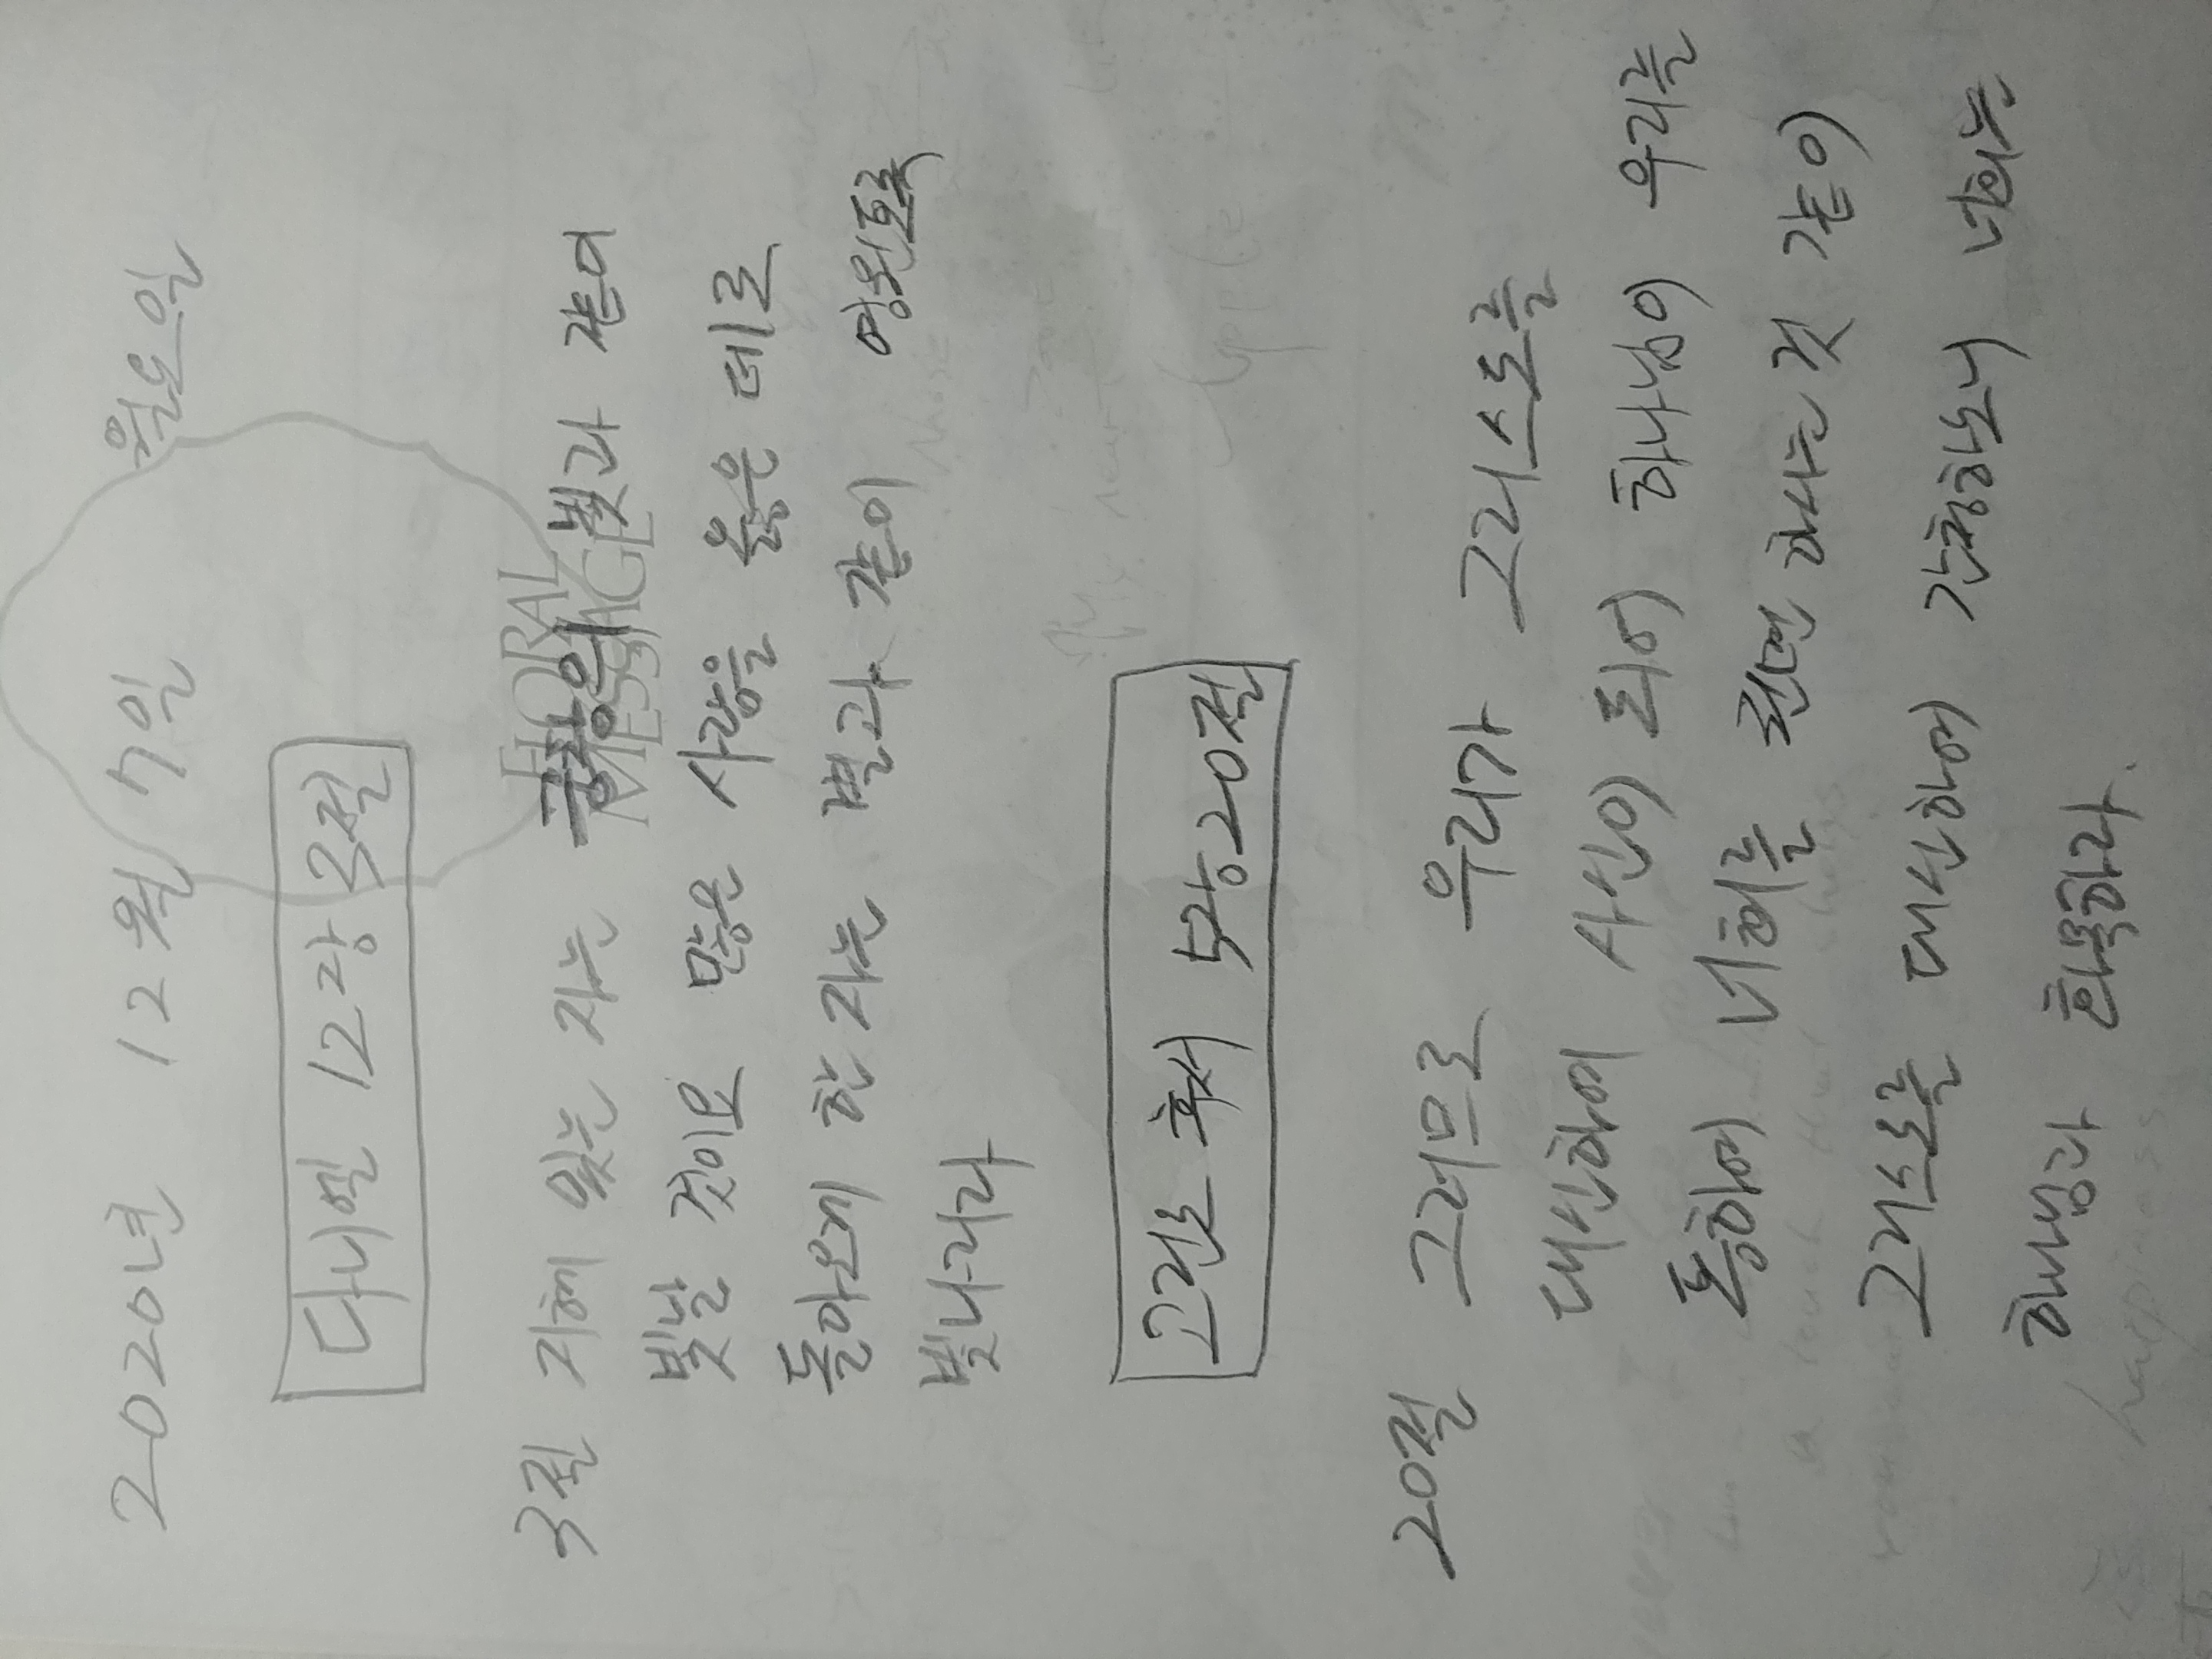 2020년 12월 7일 월요일
다니엘 12장 3절
FLORAL
MESSAGE
3절 지혜 있는 자는 궁창의 빛과 같이
빛날 것이요 많은 사람을 옳은 데로
돌아오게 한 자는 별과 같이 영원토록
빛나리라
고린도 후서 5장 20절
20절 그러므로 우리가 그리스도를
대신하여 사신이 되어 하나님이 우리를
통하여 너희를 권면 하시는 것 같이
그리스도를 대신하여 간청하노니 너희는
하나님과 화목하라.